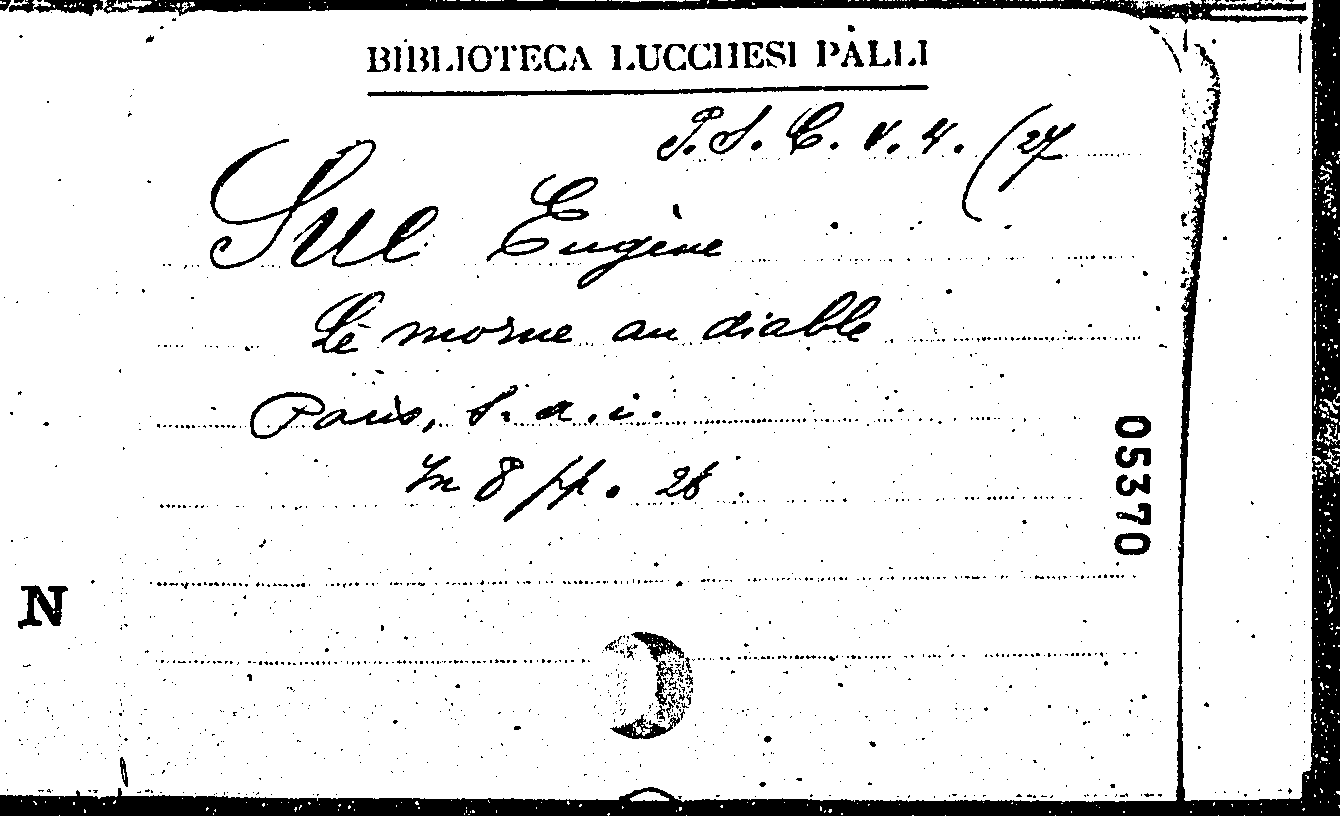 BIBLIOTECA LUCCHESI PALLI
P. S. C. V. 4. (27
Sue Eugène
Le morne au diable
Paris, s. a. i.
In 8 pp. 28.
05370
N